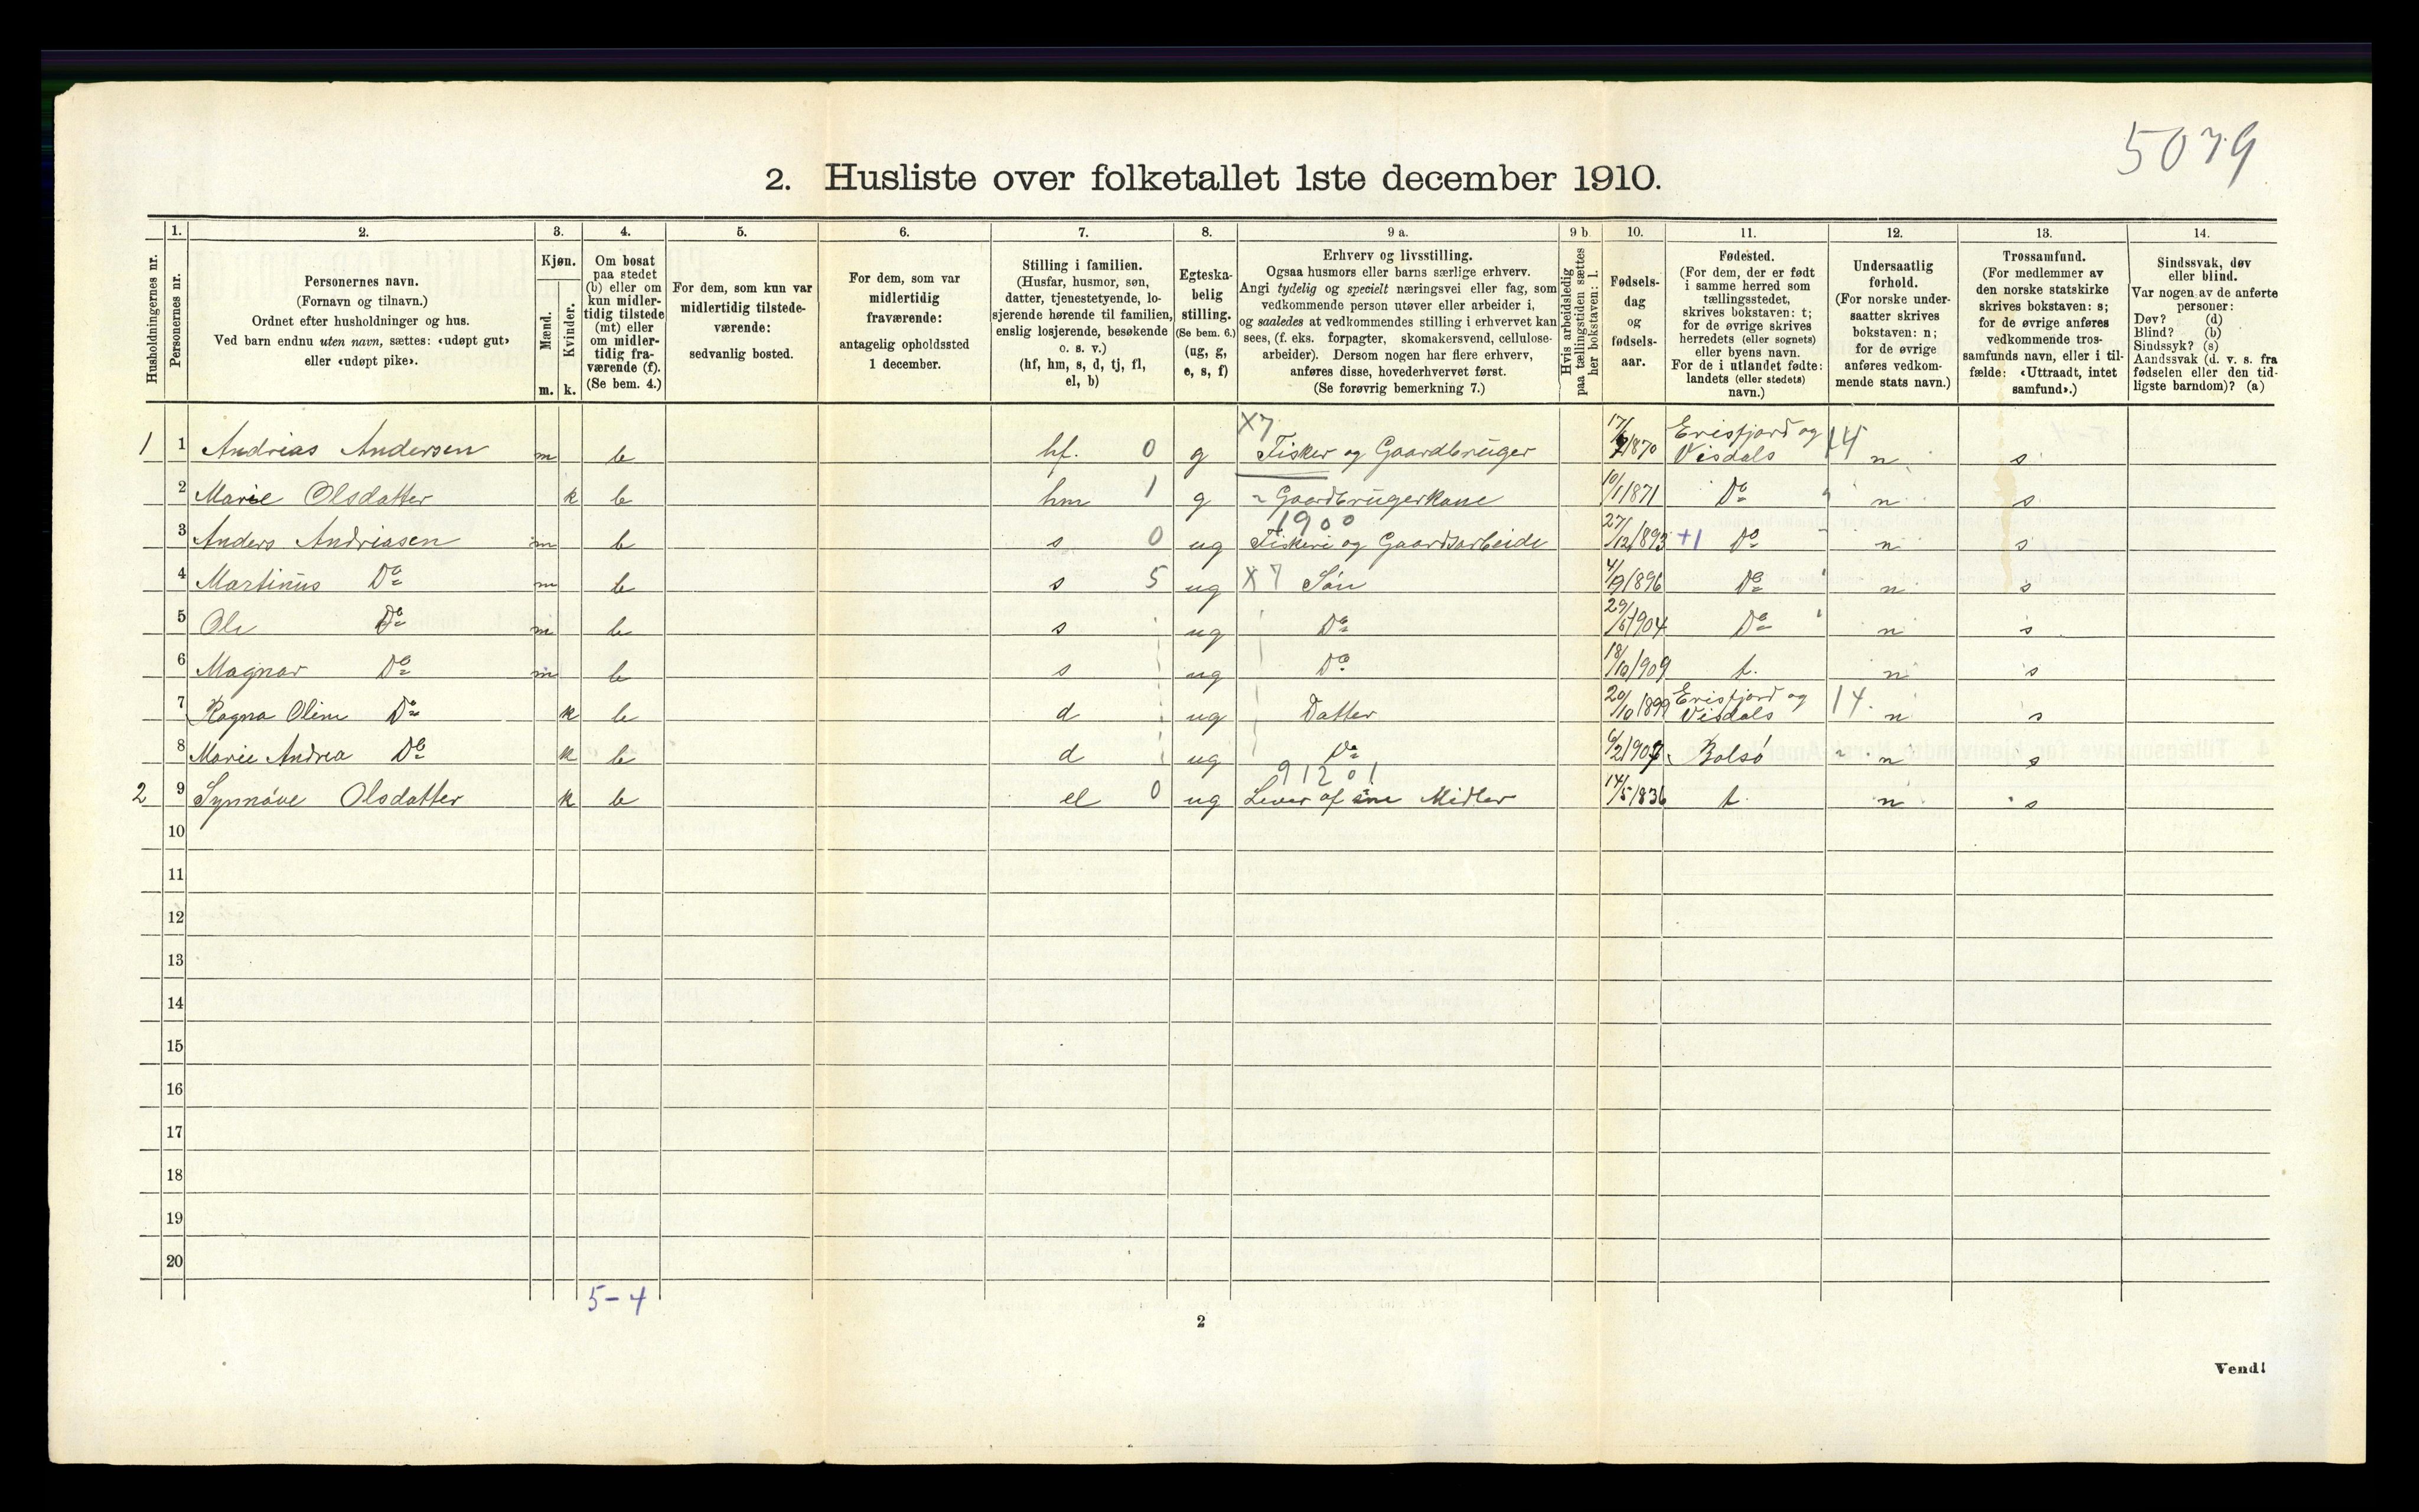 5079
2. Husliste over folketallet 1ste december 1910.
Husholdningernes nr.
1. Personernes nr.
2.
Personernes navn.
(Fornavn og tilnavn.)
Ordnet efter husholdninger og hus.
Ved barn endnu uten navn, sættes: «udøpt gut»
eller «udøpt pike».
3.
Kjøn.
Mænd. Kvinder.
m. k.
4.
Om bosat
paa stedet
(b) eller om
kun midler-
tidig tilstede
(mt) eller
om midler-
tidig fra-
værende (f).
(Se bem. 4.)
5.
For dem, som kun var
midlertidig tilstede-
værende:
sedvanlig bosted.
6.
For dem, som var
midlertidig
fraværende:
antagelig opholdssted
1 december.
7.
Stilling i familien.
(Husfar, husmor, søn,
datter, tjenestetyende, lo-
sjerende hørende til familien,
enslig losjerende, besøkende
o. s. v.)
(hf, hm, s, d, tj, fl,
el, b)
8.
Egteska-
belig
stilling.
(Se bem. 6.)
(ug, g,
e, s, f)
9 a.
Erhverv og livsstilling.
Ogsaa husmors eller barns særlige erhverv.
Angi tydelig og specielt næringsvei eller fag, som
vedkommende person utøver eller arbeider i,
og saaledes at vedkommendes stilling i erhvervet kan
sees, (f. eks. forpagter, skomakersvend, cellulose-
arbeider). Dersom nogen har flere erhverv,
anføres disse, hovederhvervet først.
(Se forøvrig bemerkning 7.)
9 b.
Hvis arbeidsledig
paa tællingstiden sættes
her bokstaven: l.
10.
Fødsels-
dag
og
fødsels-
aar.
11.
Fødested.
(For dem, der er født
i samme herred som
tællingsstedet,
skrives bokstaven: t;
for de øvrige skrives
herredets (eller sognets)
eller byens navn.
For de i utlandet fødte:
landets (eller stedets)
navn.)
12.
Undersaatlig
forhold.
(For norske under-
saatter skrives
bokstaven: n;
for de øvrige
anføres vedkom-
mende stats navn.)
13.
Trossamfund.
(For medlemmer av
den norske statskirke
skrives bokstaven: s;
for de øvrige anføres
vedkommende tros-
samfunds navn, eller i til-
fælde: «Uttraadt, intet
samfund».)
14.
Sindssvak, døv
eller blind.
Var nogen av de anførte
personer:
Døv? (d)
Blind? (b)
Sindssyk? (s)
Aandssvak (d. v. s. fra
fødselen eller den tid-
ligste barndom)? (a)
X7
1 1 Andrias Andersen m b hf. 0 g Fisker og Gaardbruger 1870 Erisfjord og Visdals 14 n s
2 Marie Olsdatter k b hm 1 g Gaardbrugerkone 10/1 1871 Do n s
1900
3 Anders Andriasen m b s 0 ug Fiskeri og Gaardsarbeide 27/12 1893 +1 Do n s
4 Martinus Do m b s 5 ug X7 Søn 4/9 1896 Do n s
5 Ole Do m b s ug Do 1904 Do n s
6 Magnar Do m b s ug Do 18/10 1909 t. n s
7 Ragna Oline Do k b d ug Datter 20/10 1899 Erisfjord og Visdals 14. n s
8 Marie Andrea Do k b d ug Do 6/2 1907 Bolsø n s
91201
2 9 Synnøve Olsdatter k b el 0 ug Lever af sine Midler 14/5 1836 t n s
10
11
12
13
14
15
16
17
18
19
20
5-4
2
Vend!